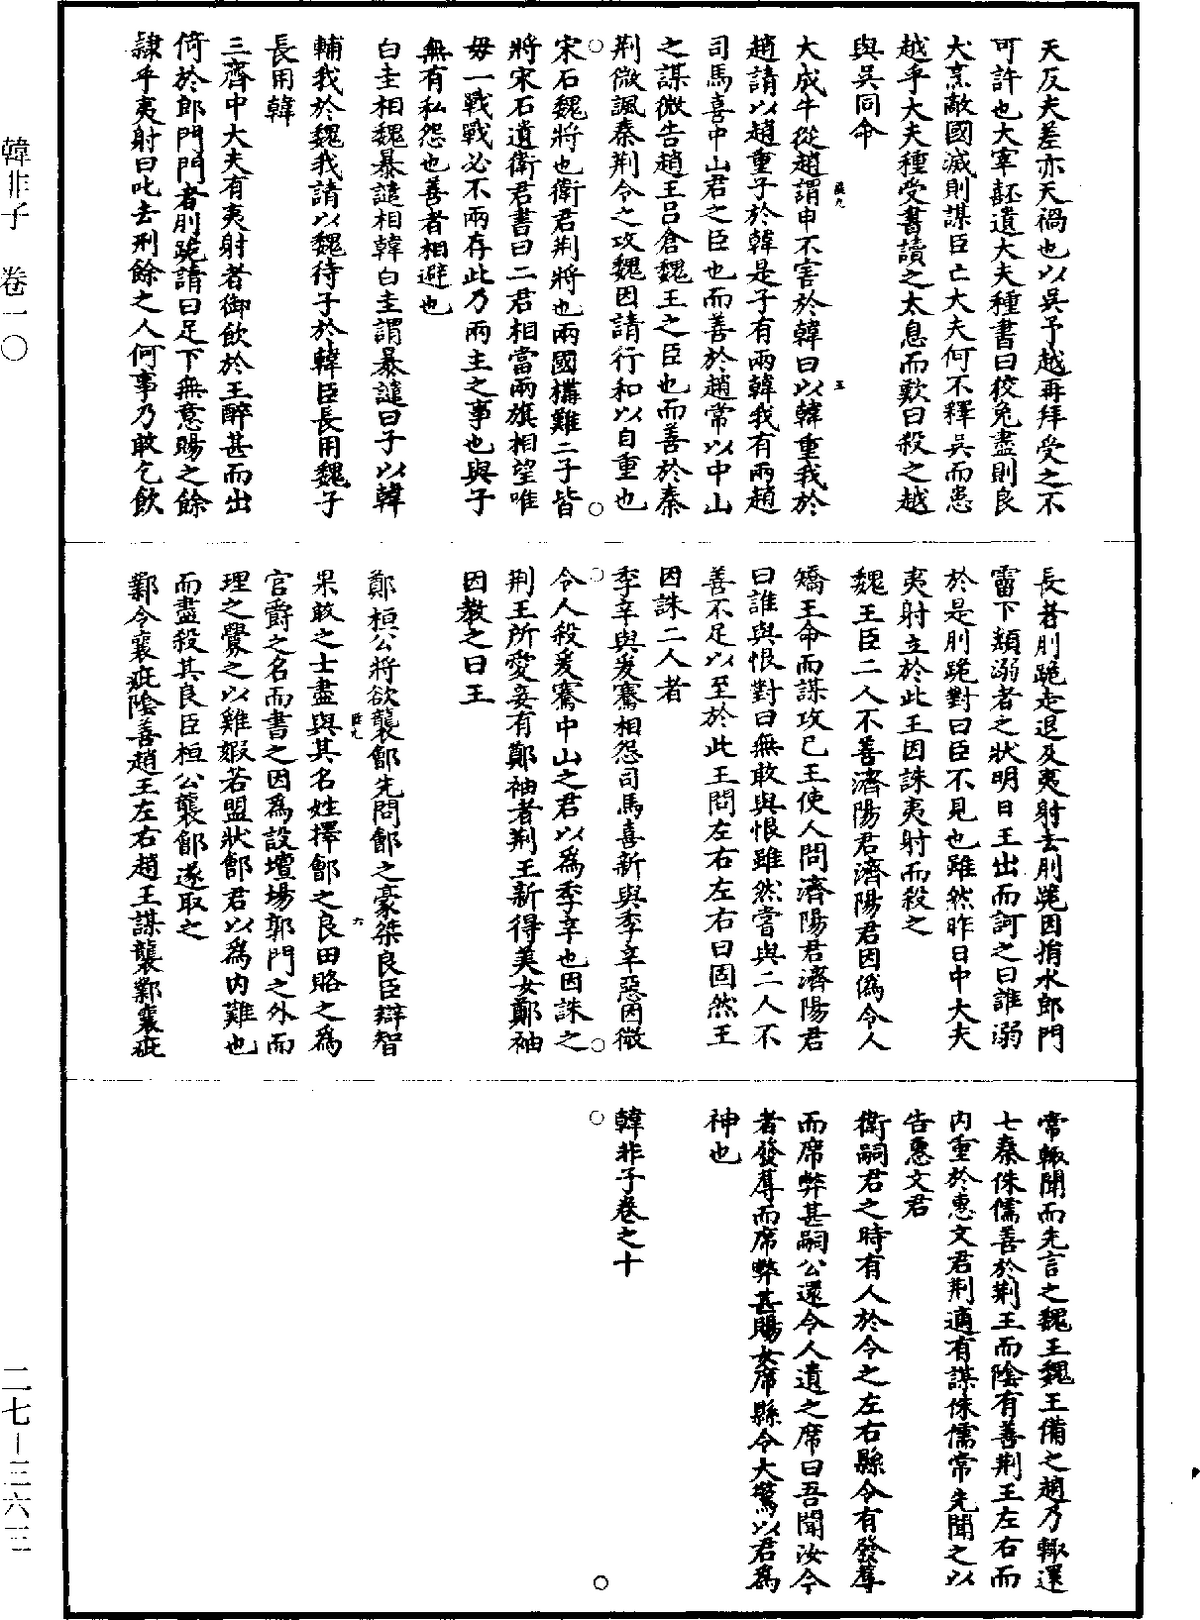 天反夫差亦天禍也以吳予越再拜受之不
可許也大宰嚭遺大夫種書曰狡兔盡則良
犬烹敵國滅則謀臣亡大夫何不釋吳而患
越乎大夫種受書讀之太息而歎曰殺之越
與吳同命
大成牛從趙謂申不害於韓曰以韓重我於
趙請以趙重子於韓是子有兩韓我有兩趙
司馬喜中山君之臣也而善於趙常以中山
之謀微告趙王呂倉魏王之臣也而善於秦
荆微諷秦荆令之攻魏因請行和以自重也
宋石魏將也衛君荆將也兩國構難二子皆
將宋石遺衛君書曰二君相當兩旗相望唯
毋一戰戰必不兩存此乃兩主之事也與子
無有私怨也善者相避也
白圭相魏暴譴相韓白圭謂暴譴曰子以韓
輔我於魏我請以魏待子於韓臣長用魏子
長用韓
三齊中大夫有夷射者御飲於王醉甚而出
倚於郎門門者刖跪請曰足下無意賜之餘
隷乎夷射曰叱去刑餘之人何事乃敢乞飲
長者刖跪走退及夷射去刖跪因捐水郎門
霤下類溺者之狀明日王出而訶之曰誰溺
於是刖跪對曰臣不見也雖然昨日中大夫
夷射立於此王因誅夷射而殺之
魏王臣二人不善濟陽君濟陽君因僞令人
矯王命而謀攻己王使人問濟陽君濟陽君
曰誰與恨對曰無敢與恨雖然嘗與二人不
善不足以至於此王問左右左右曰固然王
因誅二人者
季辛與爰騫相怨司馬喜新與季辛惡因微
令人殺爰騫中山之君以為季辛也因誅之
荆王所愛妾有鄭袖者荆王新得美女鄭袖
因教之曰王
鄭桓公將欲襲鄶先問鄶之豪桀良臣辯智
果敢之士盡與其名姓擇鄶之良田賂之為
官爵之名而書之因為設壇場郭門之外而
理之釁之以雞豭若盟狀鄶君以為內難也
而盡殺其良臣桓公襲鄶遂取之
鄴令襄疵陰善趙王左右趙王謀襲鄴襄疵
常輒聞而先言之魏王魏王備之趙乃輒還
七秦侏儒善於荆王而陰有善荆王左右而
內重於惠文君荆適有謀侏儒常先聞之以
告惠文君
衛嗣君之時有人於令之左右縣令有發蓐
而席弊甚嗣公還令人遺之席曰吾聞汝今
者發蓐而席弊甚賜女席縣令大驚以君為
神也
韓非子卷之十
韓非子 卷一〇
二七—三六三